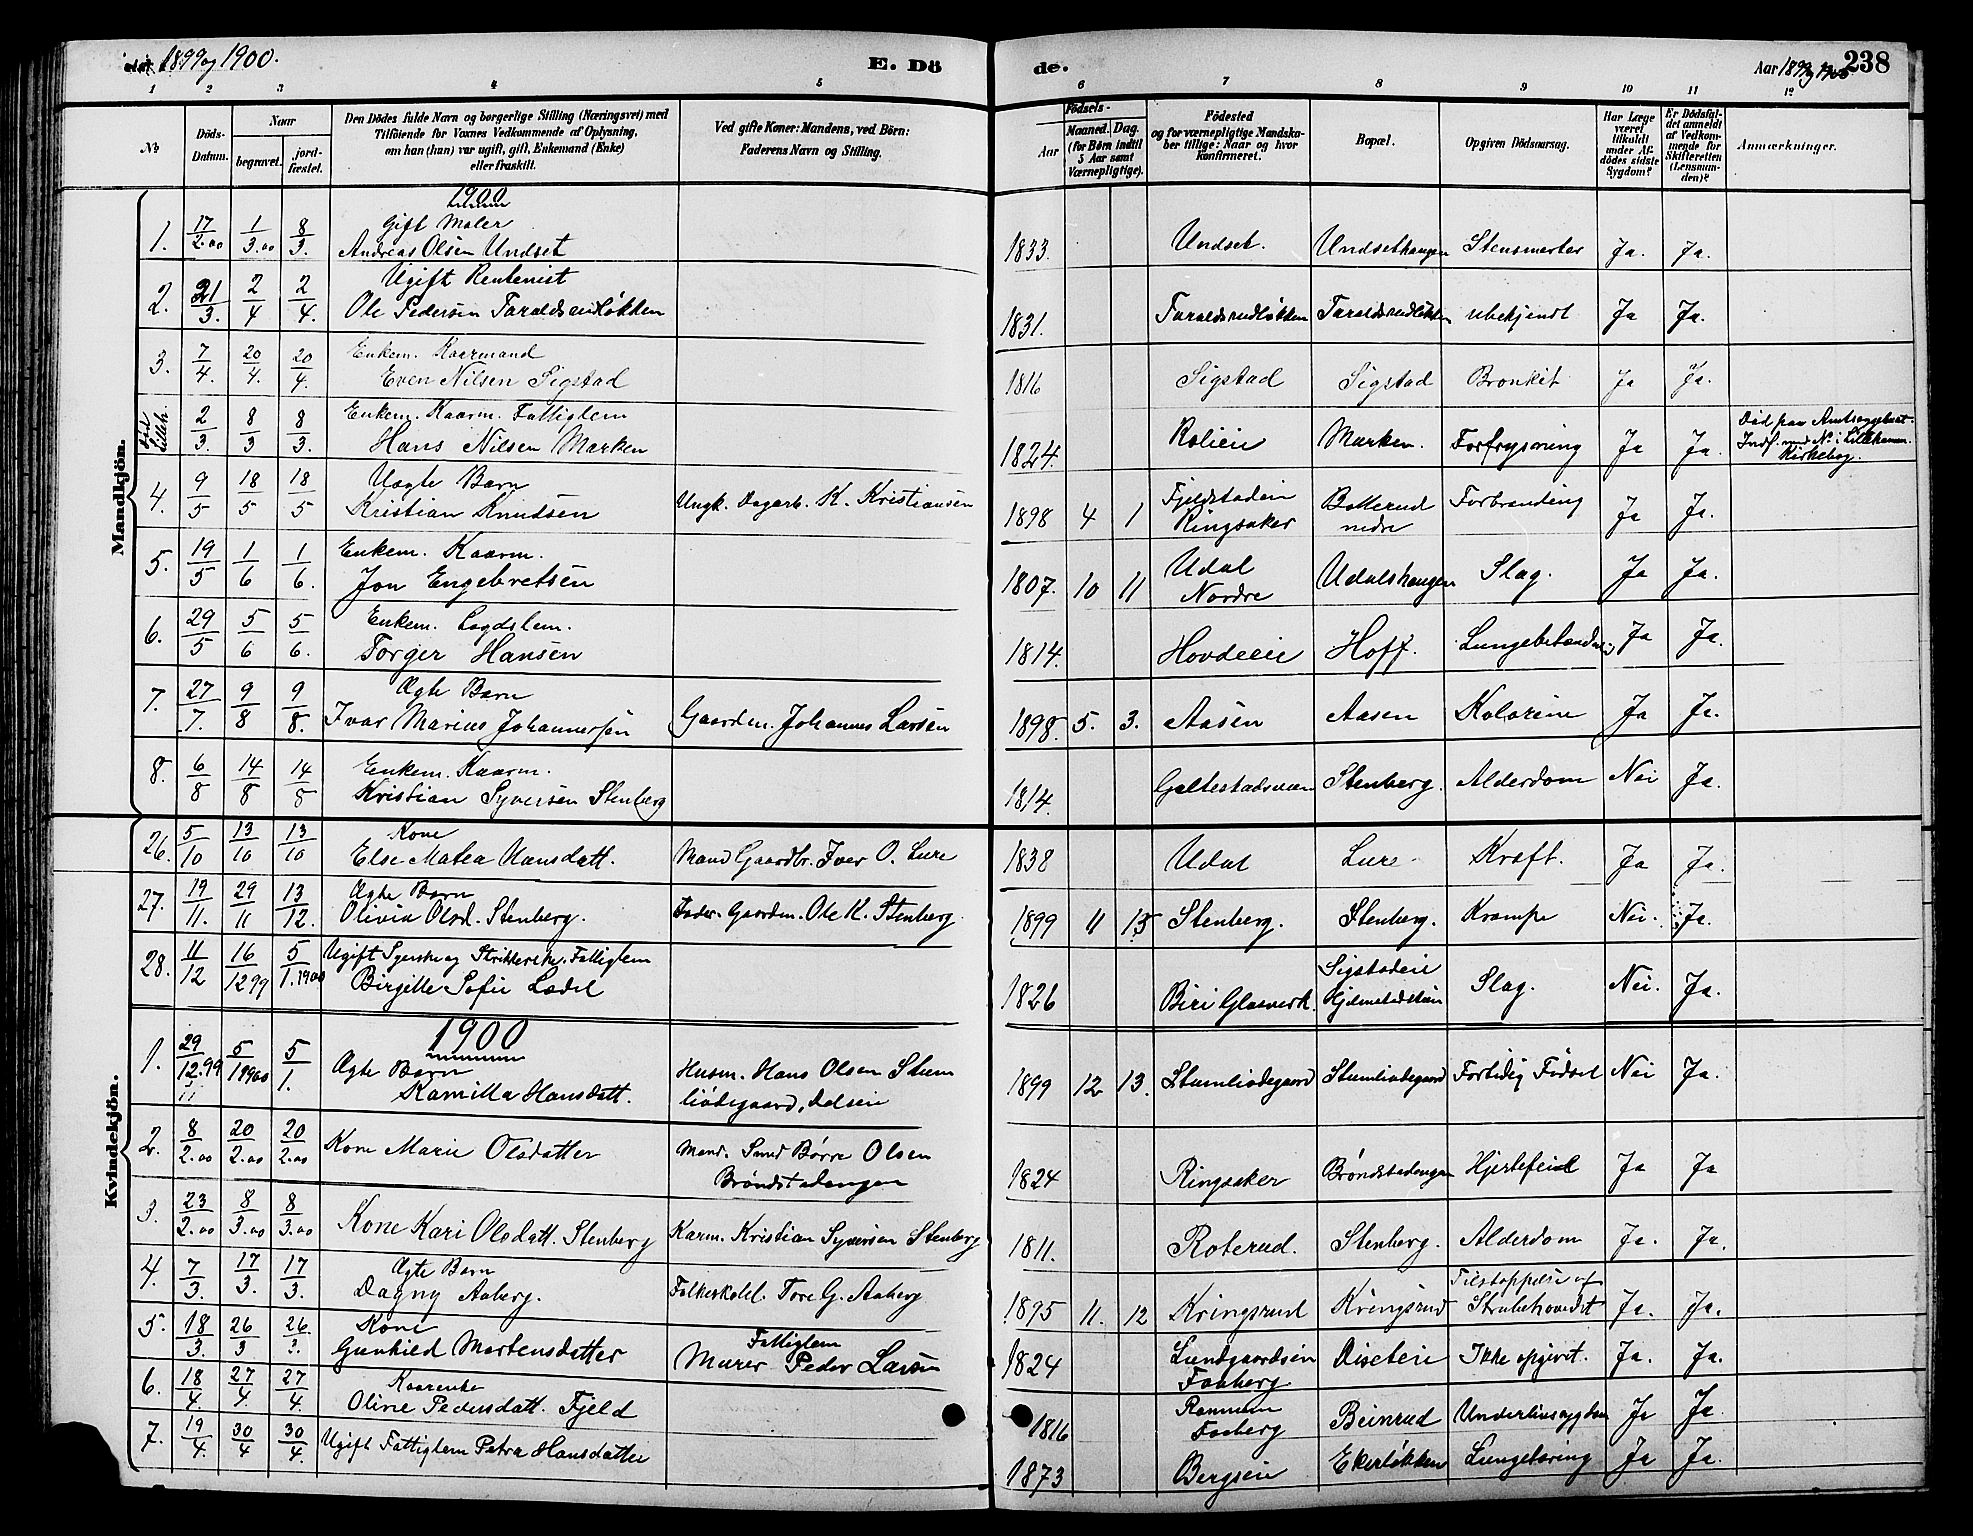 Aar 1899 og 1900.
E. Dö
de.
Aar 1899 og 1900
238
1 2 3 4 5 6 7 8 9 10 11 12
No
Döds-Datum.
Naar
begravet.
jord-fæstet.
Den Dödes fulde Navn og borgerlige Stilling (Næringsvei) med
Tilföiende for Voxnes Vedkommende af Oplysning,
om han (hun) var ugift, gift, Enkemand (Enke)
eller fraskilt.
Ved gifte Koner: Mandens, ved Börn:
Faderens Navn og Stilling.
Födsels-
Aar
Maaned. Dag.
(for Börn indtil
5 Aar samt
Værnepligtige).
Födested
og for værnepligtige Mandska-
ber tillige: Naar og hvor
konfirmeret.
Bopæl.
Opgiven Dödsaarsag.
Har Læge
været
tilkaldt
under Af-
dödes sidste
Sygdom?
Er Dödsfal-
det anmeldt
af Vedkom-
mende for
Skifteretten
(Lensman-
den)?
Anmærkninger.
Mandkjön.
1900
1. 17/2.00 1/3.00 8/3. Gift Maler
Andreas Olsen Undset 1833. Undset. Undsethaugen Stensmerter Ja. Ja.
2. 21/3. 2/4 2/4. Ugift Rentenist
Ole Pedersen Taraldsrudløkken 1831. Taraldsrudløkken Taraldsrudløkken ubekjendt Ja Ja.
3. 7/4. 20/4. 20/4. Enkem. Kaarmand
Even Nilsen Sigstad 1816 Sigstad Sigstad Bronkit Ja Ja.
død Lilleh. 2/3. 8/3 8/3. Enkem. Kaarm. Fattiglem
Hans Nilsen Marken 1824. Rolieie Marken. Forfrysning Ja Ja. Død paa Amtssygehuset.
Indf. med No. i Lillehamm.
Kirkebog.
4. 9/5 18/5 18/5 Uægte Barn
Kristian Knudsen Ungk. Dagarb. K. Kristiansen 1898 4 1 Fjeldstadeie
Ringsaker Botterud
nedre Forbrænding Ja Ja.
5. 19/5 1/6 1/6. Enkem. Kaarm.
Jon Engebretsen 1807. 10 11 Udal
Nordre Udalshaugen Slag. Ja Ja.
6. 29/5 5/6 5/6. Enkem. Lægdslem.
Torger Hansen 1814. Hovdeeie Hoff. Lungebetændelse Ja Ja.
7. 27/7. 9/8 9/8. Ægte Barn
Ivar Marius Johannessen Gaardm. Johannes Larsen 1898. 5. 3. Aasen Aasen Kolorine Ja Ja.
8. 6/8 14/8 14/8 Enkem. Kaarm.
Kristian Syversen Stenberg 1814. Stenberg. Alderdom Nei Ja.
Kvindekjön.
26. 5/10 13/10 13/10 Kone
Else Matea Hansdatt. Mand Gaardbr. Iver O. Lure 1838 Udal Lure Kræft. Ja Ja.
27. 19/11. 29/11 13/12. Ægte Barn
Olivia Olsd. Stenberg. Fader. Gaardm. Ole K. Stenberg. 1899 11 13 Stenberg. Stenberg. Krampe Nei. Ja.
28. 11/12 16/12 99 5/1. 1900 Ugift Syerske og Strikkerske, Fattiglem
Birgitte Sofie Lædel 1826 Biri Glasverk. Sigstadeie
Slag. Nei. Ja.
1900
1. 29/12.99 5/1 1900 5/1. Ægte Barn
Kamilla Hansdatt. Husm. Hans Olsen Stum
liødegaard, 1899 12 13. Stumliødegaard Stumliødegaard Fortidig Fødsel Nei Ja.
2. 8/2.00 20/2.00 20/2.00 Kone Marie Olsdatter Mand. Smed Børre Olsen
Brøndstadengen 1824 Ringsaker Brøndstadengen Hjertefeil Ja Ja
3. 23/2.00 8/3.00 8/3.00 Kone Kari Olsdatt. Stenberg Karm. Kristian Syversen Stenberg 1811. Roterud. Stenberg. Alderdom Ja. Ja.
4. 7/3. 17/3. 17/3. Ægte Barn
Dagny Aaberg. Tore G. Aaberg 1895 11. 12 Kringsrud Kringsrud Tilstoppelse af
Strubehovedet Ja. Ja.
5. 18/3. 26/3 26/3. Kone
Gunhild Mortensdatter Fattiglem
Murer Peder Larsen 1824 Lundgaardseie
Faaberg Diseteie Ikke opgivet. Ja. Ja.
6. 18/4. 27/4 27/4. Kaarenke
Oline Pedersdatt. Fjeld 1816
Faaberg Beinrud Underlivssygdom Ja Ja
7. 19/4. 30/4 30/4. Ugift Fattiglem Petra Hansdatter 1873 Bergseie Ekerløkken Lungetæring Ja Ja.